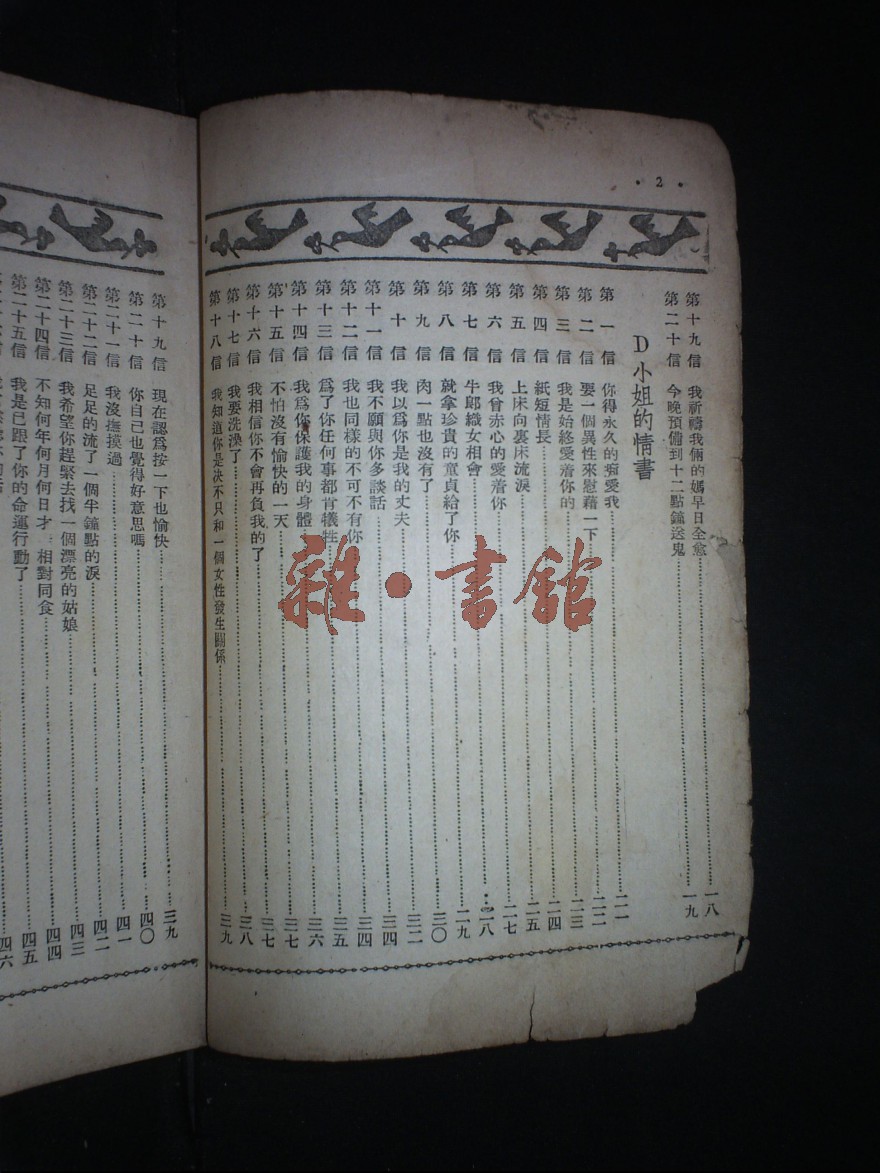 • 2 •
第十九信 我祈禱我倆的媽早日全愈…一八
第二十信 今晚預備到十二點鐘送鬼…一九
D小姐的情書
第一信 你得永久的痴愛我…二一
第二信 要一個異性來慰藉一下…二二
第三信 我是始終愛着你的…二三
第四信 紙短情長…二四
第五信 上床向裏床流淚…二五
第六信 我曾赤心的愛着你…二七
第七信 牛郎織女相會…二八
第八信 就拿珍貴的童貞給了你…二九
第九信 肉一點也沒有了…三〇
第十信 我以爲你是我的丈夫…三二
第十一信 我不願與你多談話…三四
第十二信 我也同樣的不可不有你…三四
第十三信 爲了你任何事都肯犧牲…三五
第十四信 我爲你保護我的身體…三六
第十五信 不怕沒有愉快的一天…三七
第十六信 我相信你不會再負我的了…三七
第十七信 我要洗澡了…三八
第十八信 我知道你是决不只和一個女性發生關係…三九
第十九信 現在認爲按一下也愉快…三九
第二十信 你自己也覺得好意思嗎…四〇
第二十一信 我沒撫摸過…四一
第二十二信 足足的流了一個半鐘點的淚…四二
第二十三信 我希望你趕緊去找一個漂亮的姑娘…四三
第二十四信 不知何年何月何日才 相對同食…四四
第二十五信 我是已跟了你的命運行動了…四五
四六
雜·書館